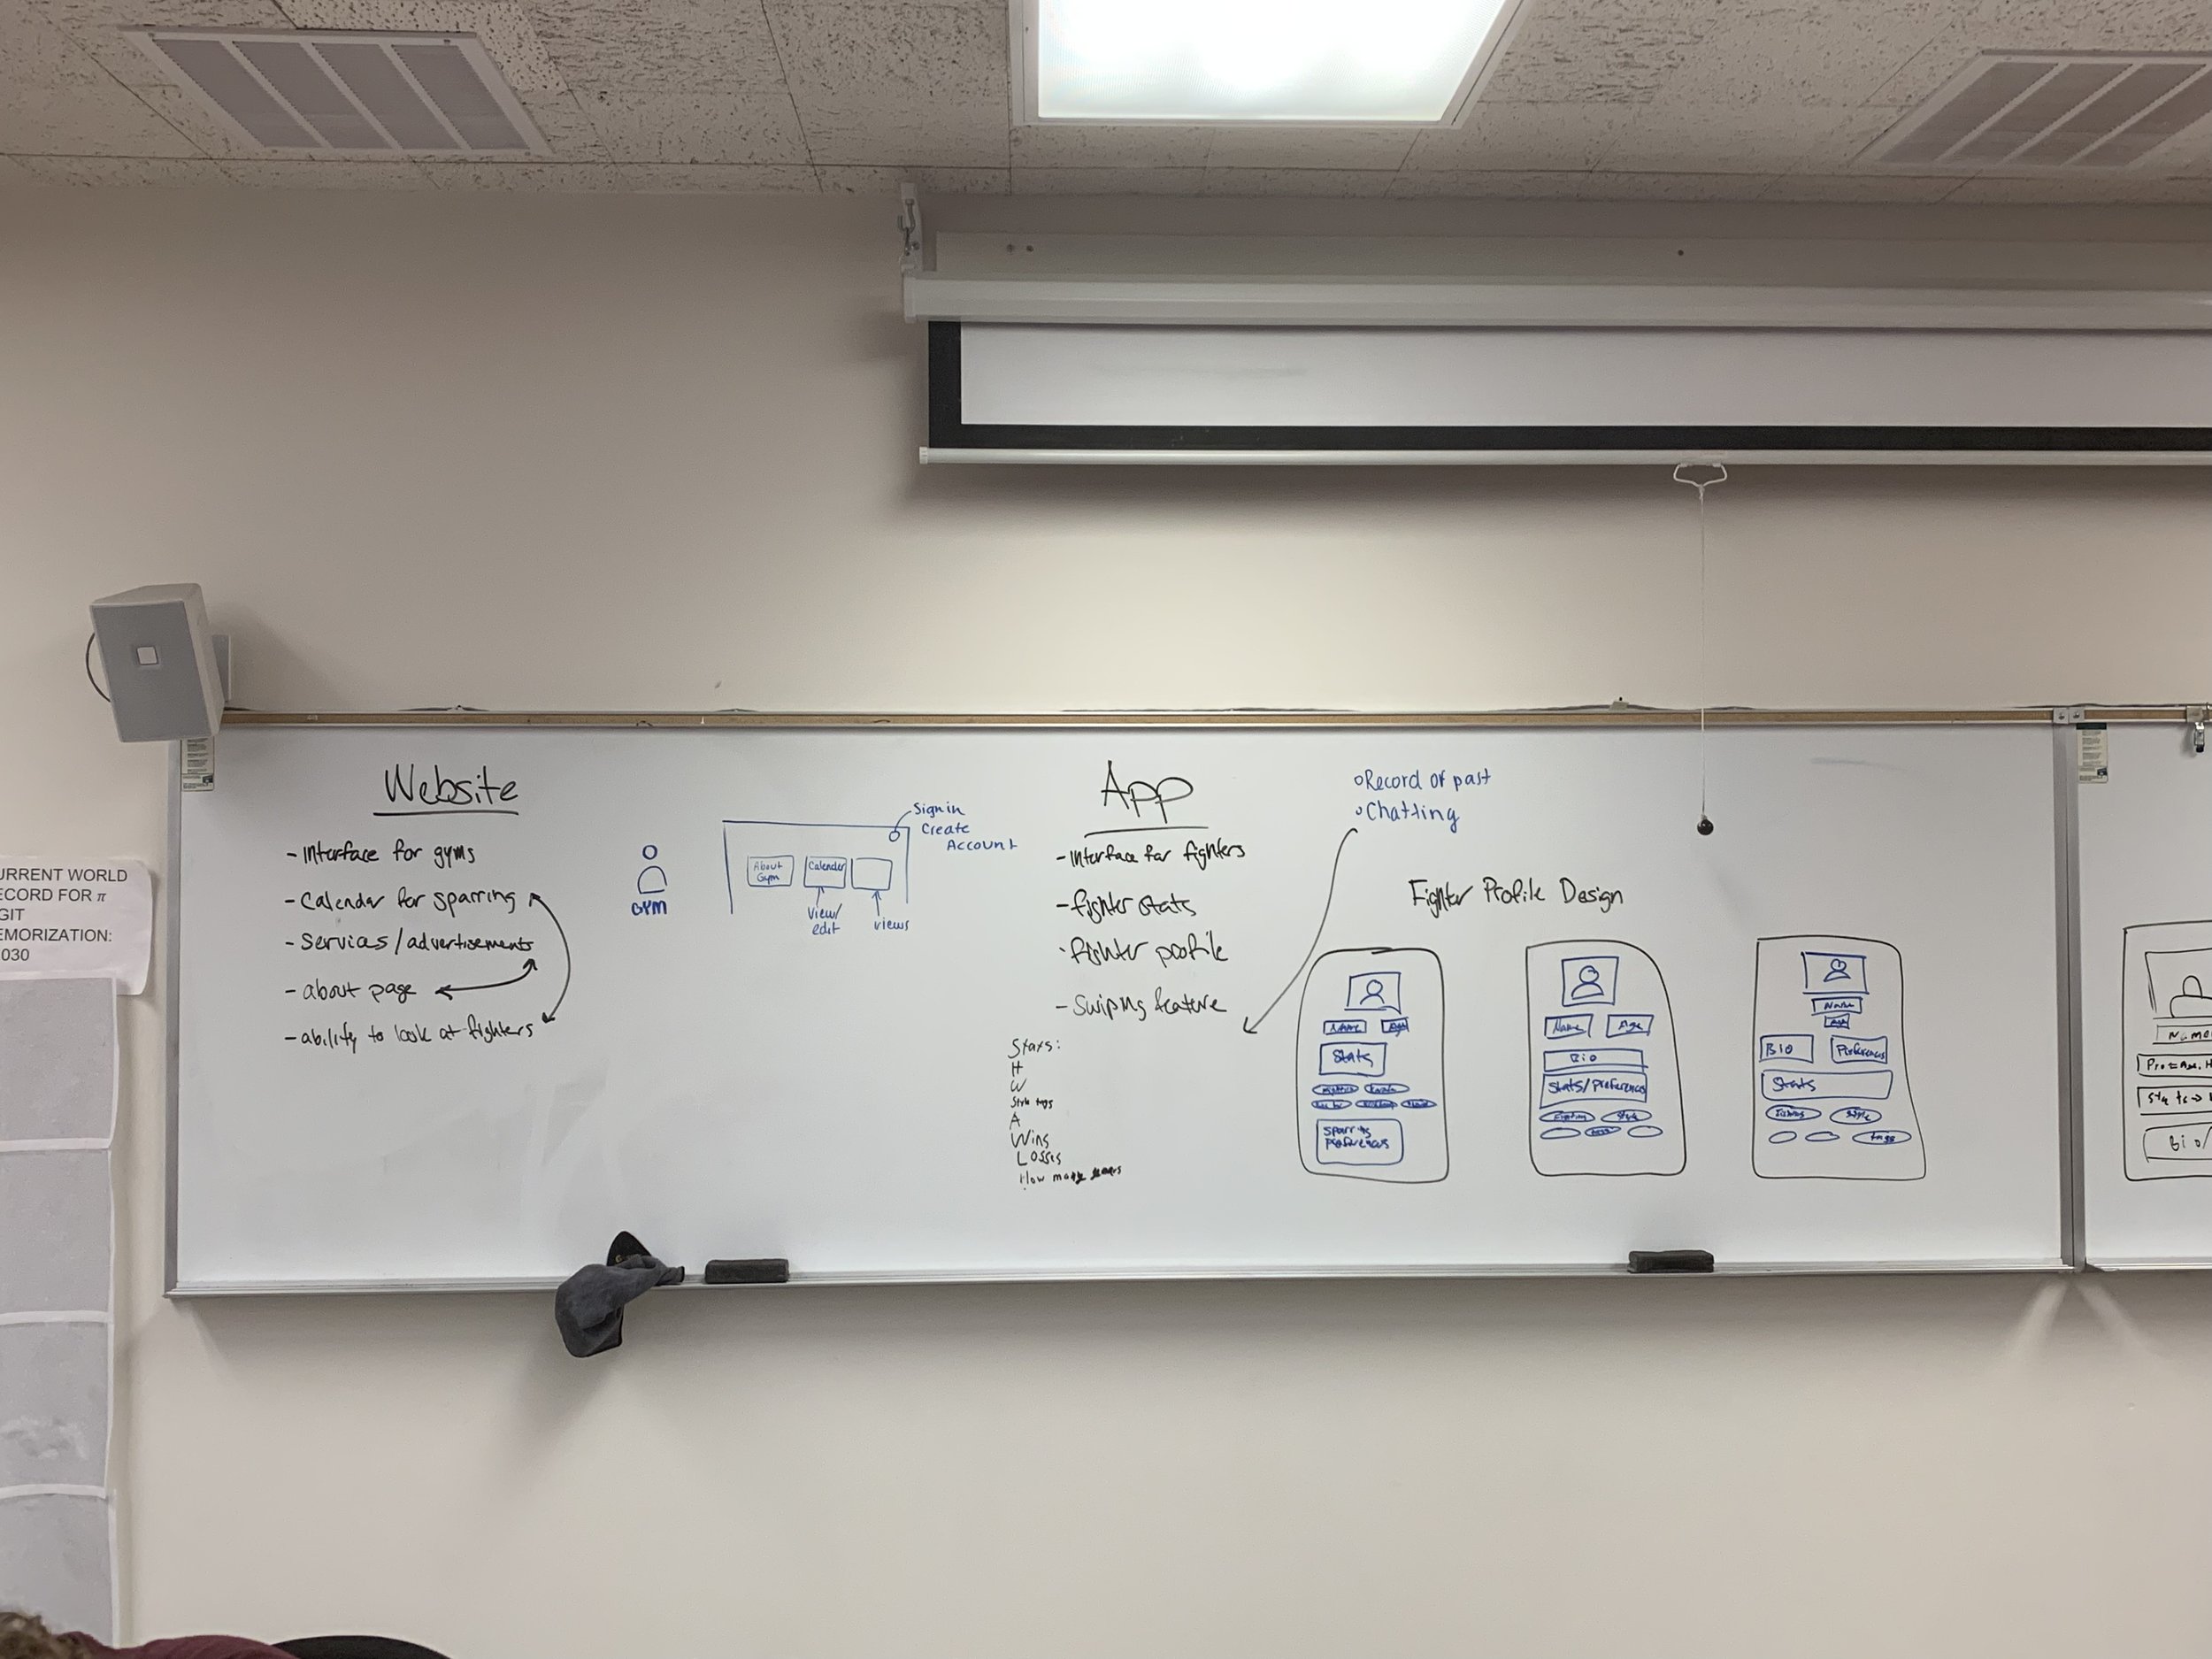 URRENT WORLD
ECORD FOR π
GIT
EMORIZATION:
030
Website
- Interface for gyms
- Calender for sparring
- Services/advertisements
- about page
- ability to look at fighters
GYM
Sign in
Create
Account
About
Gym
Calender
View/
edit
views
App
- Interface for fighters
- fighter stats
- fighter profile
- Swiping feature
Stats:
H
W
Style tags
A
Wins
Losses
How many years
Record of past
Chatting
Fighter Profile Design
Name
Age
Stats
Sparring
preferences
Name
Age
Bio
Stats/preferences
Style
Name
Age
Bio
Preferences
Stats
Style
tags
Name
Bio/